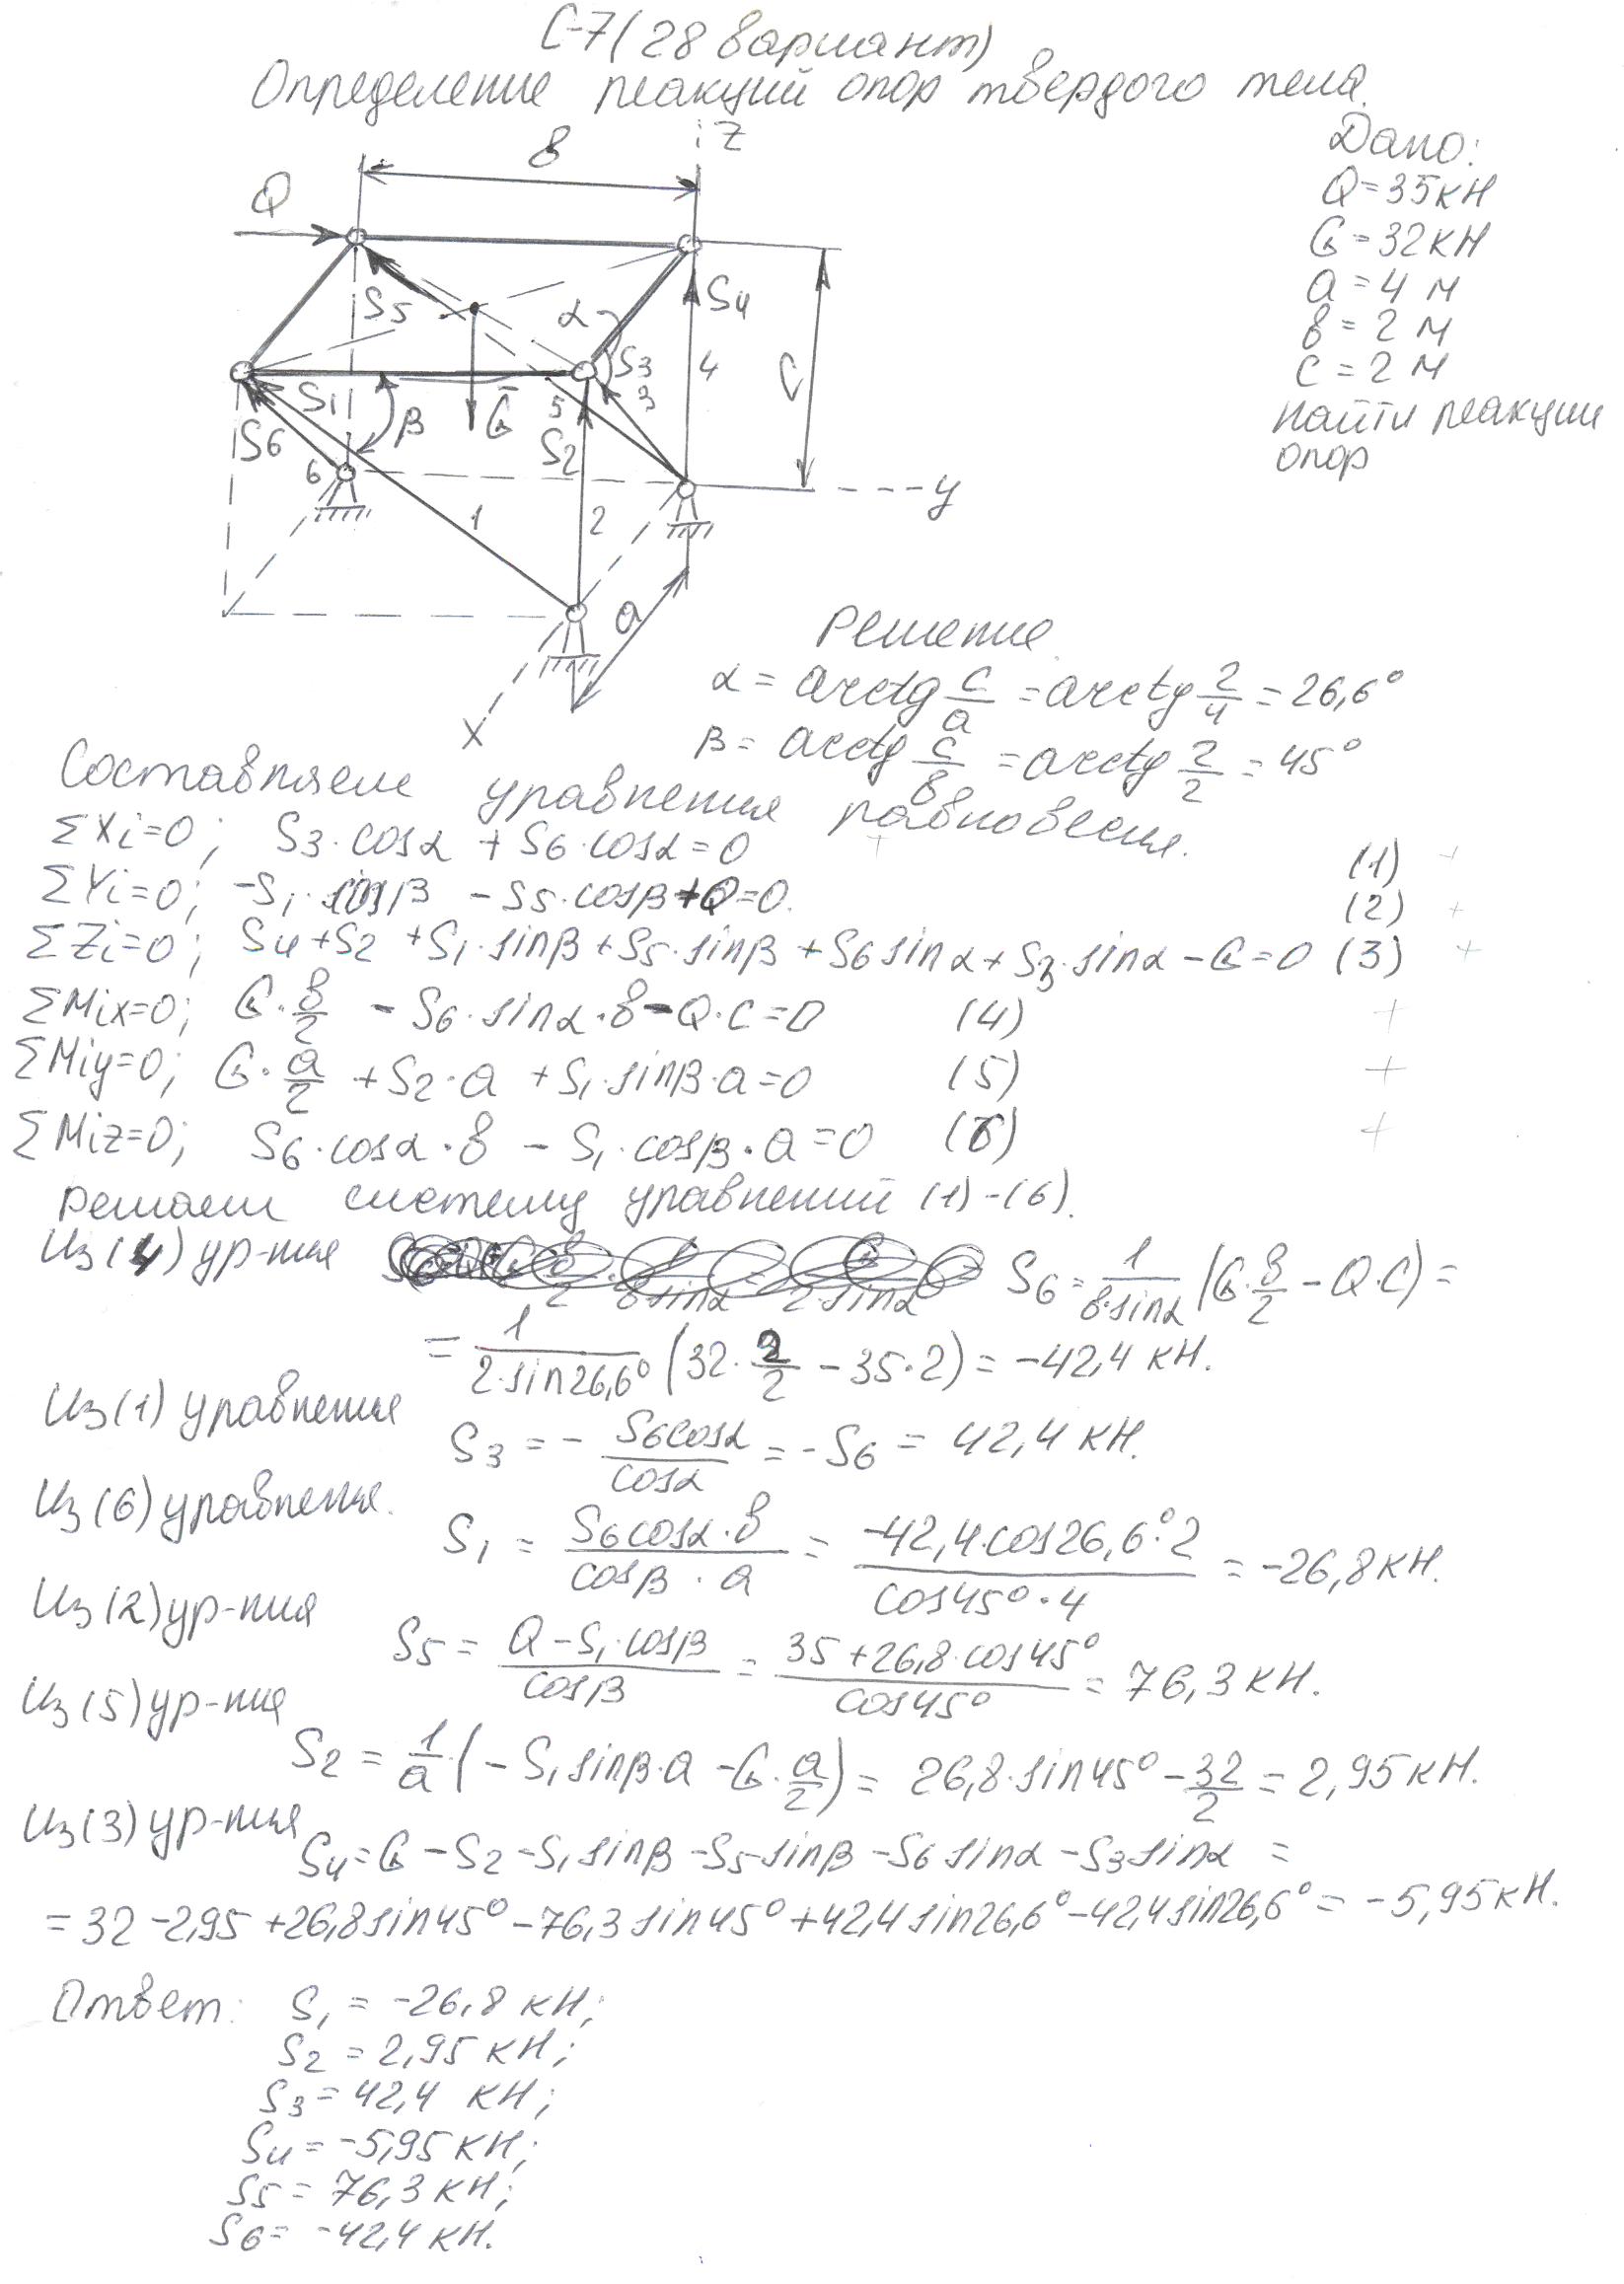 С-7 (28 вариант)
Определение реакций опор твердого тела.
Дано:
Q = 35 кН
G = 32 кН
a = 4 м
в = 2 м
c = 2 м
найти реакции
опор
в
z
Q
S5
α
S4
S3
4
C
S1
β
G
5
3
S6
S2
6
y
1
2
a
x
Решение
α = arctg c/a = arctg 2/4 = 26,6°
β = arctg c/в = arctg 2/2 = 45°
Составляем уравнения равновесия.
ΣXi=0; S3·cosα + S6·cosα = 0 (1)
ΣYi=0; -S1·cosβ - S5·cosβ + Q = 0. (2)
ΣZi=0; S4 + S2 + S1·sinβ + S5·sinβ + S6 sinα + S3·sinα - G = 0 (3)
ΣMix=0; G·в/2 - S6·sinα·в - Q·c = 0 (4)
ΣMiy=0; G·a/2 + S2·a + S1·sinβ·a = 0 (5)
ΣMiz=0; S6·cosα·в - S1·cosβ·a = 0 (6)
Решаем систему уравнений (1)-(6).
Из (4) ур-ния S6 = 1/(в·sinα) (G·в/2 - Q·c) =
= 1/(2·sin26,6°) (32·2/2 - 35·2) = -42,4 кН.
Из (1) уравнения
S3 = - S6cosα/cosα = -S6 = 42,4 кН.
Из (6) уравнения.
S1 = S6cosα·в/(cosβ·a) = -42,4·cos26,6°·2/(cos45°·4) = -26,8 кН.
Из (2) ур-ния
S5 = (Q - S1·cosβ)/cosβ = (35 + 26,8·cos45°)/cos45° = 76,3 кН.
Из (5) ур-ния
S2 = 1/a (-S1 sinβ·a - G·a/2) = 26,8·sin45° - 32/2 = 2,95 кН.
Из (3) ур-ния
S4 = G - S2 - S1 sinβ - S5 sinβ - S6 sinα - S3 sinα =
= 32 - 2,95 + 26,8 sin45° - 76,3 sin45° + 42,4 sin26,6° - 42,4 sin26,6° = -5,95 кН.
Ответ: S1 = -26,8 кН;
S2 = 2,95 кН;
S3 = 42,4 кН;
S4 = -5,95 кН;
S5 = 76,3 кН;
S6 = -42,4 кН.